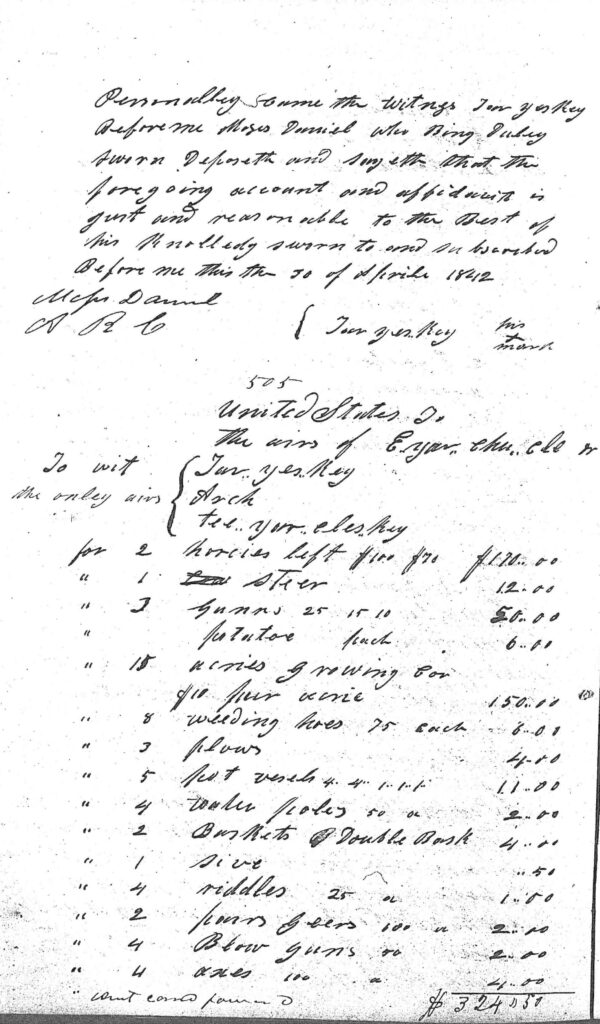 Personalley Came the Witness Tar yes Key
Before me Moses Daniel who Bing Duley
sworn Deposeth and sayeth that the
foregoing account and affidavit is
just and reasonable to the Best of
his Knolledg sworn to and subscribed
Before me this the 30 of Aprile 1842
Moses Daniel
A R C { Tar yes Key his
mark
505
United States To
the airs of E.yar..chu..cle
To wit { Tar..yes..Key
the onley airs Arch
tee..yar..cles.key
for 2 horcies left $100 $70 $170..00
" 1 steer 12..00
" 3 gunns 25 15 10 50..00
" potatoe pach 6..00
" 15 acries growing Cor
$10 pair acrie 150..00
" 8 weeding hoes 75 each 6..00
" 3 plows 4..00
" 5 pot vesels 4..4..1..1..1 11..00
" 4 water poles 50 a 2..00
" 2 Baskets Double Bask 4..00
" 1 sive ..50
" 4 riddles 25 a 1..00
" 2 pairs Geers 100 a 2..00
" 4 Blow guns 50 2..00
" 4 axes 100 a 4..00
" $324..50